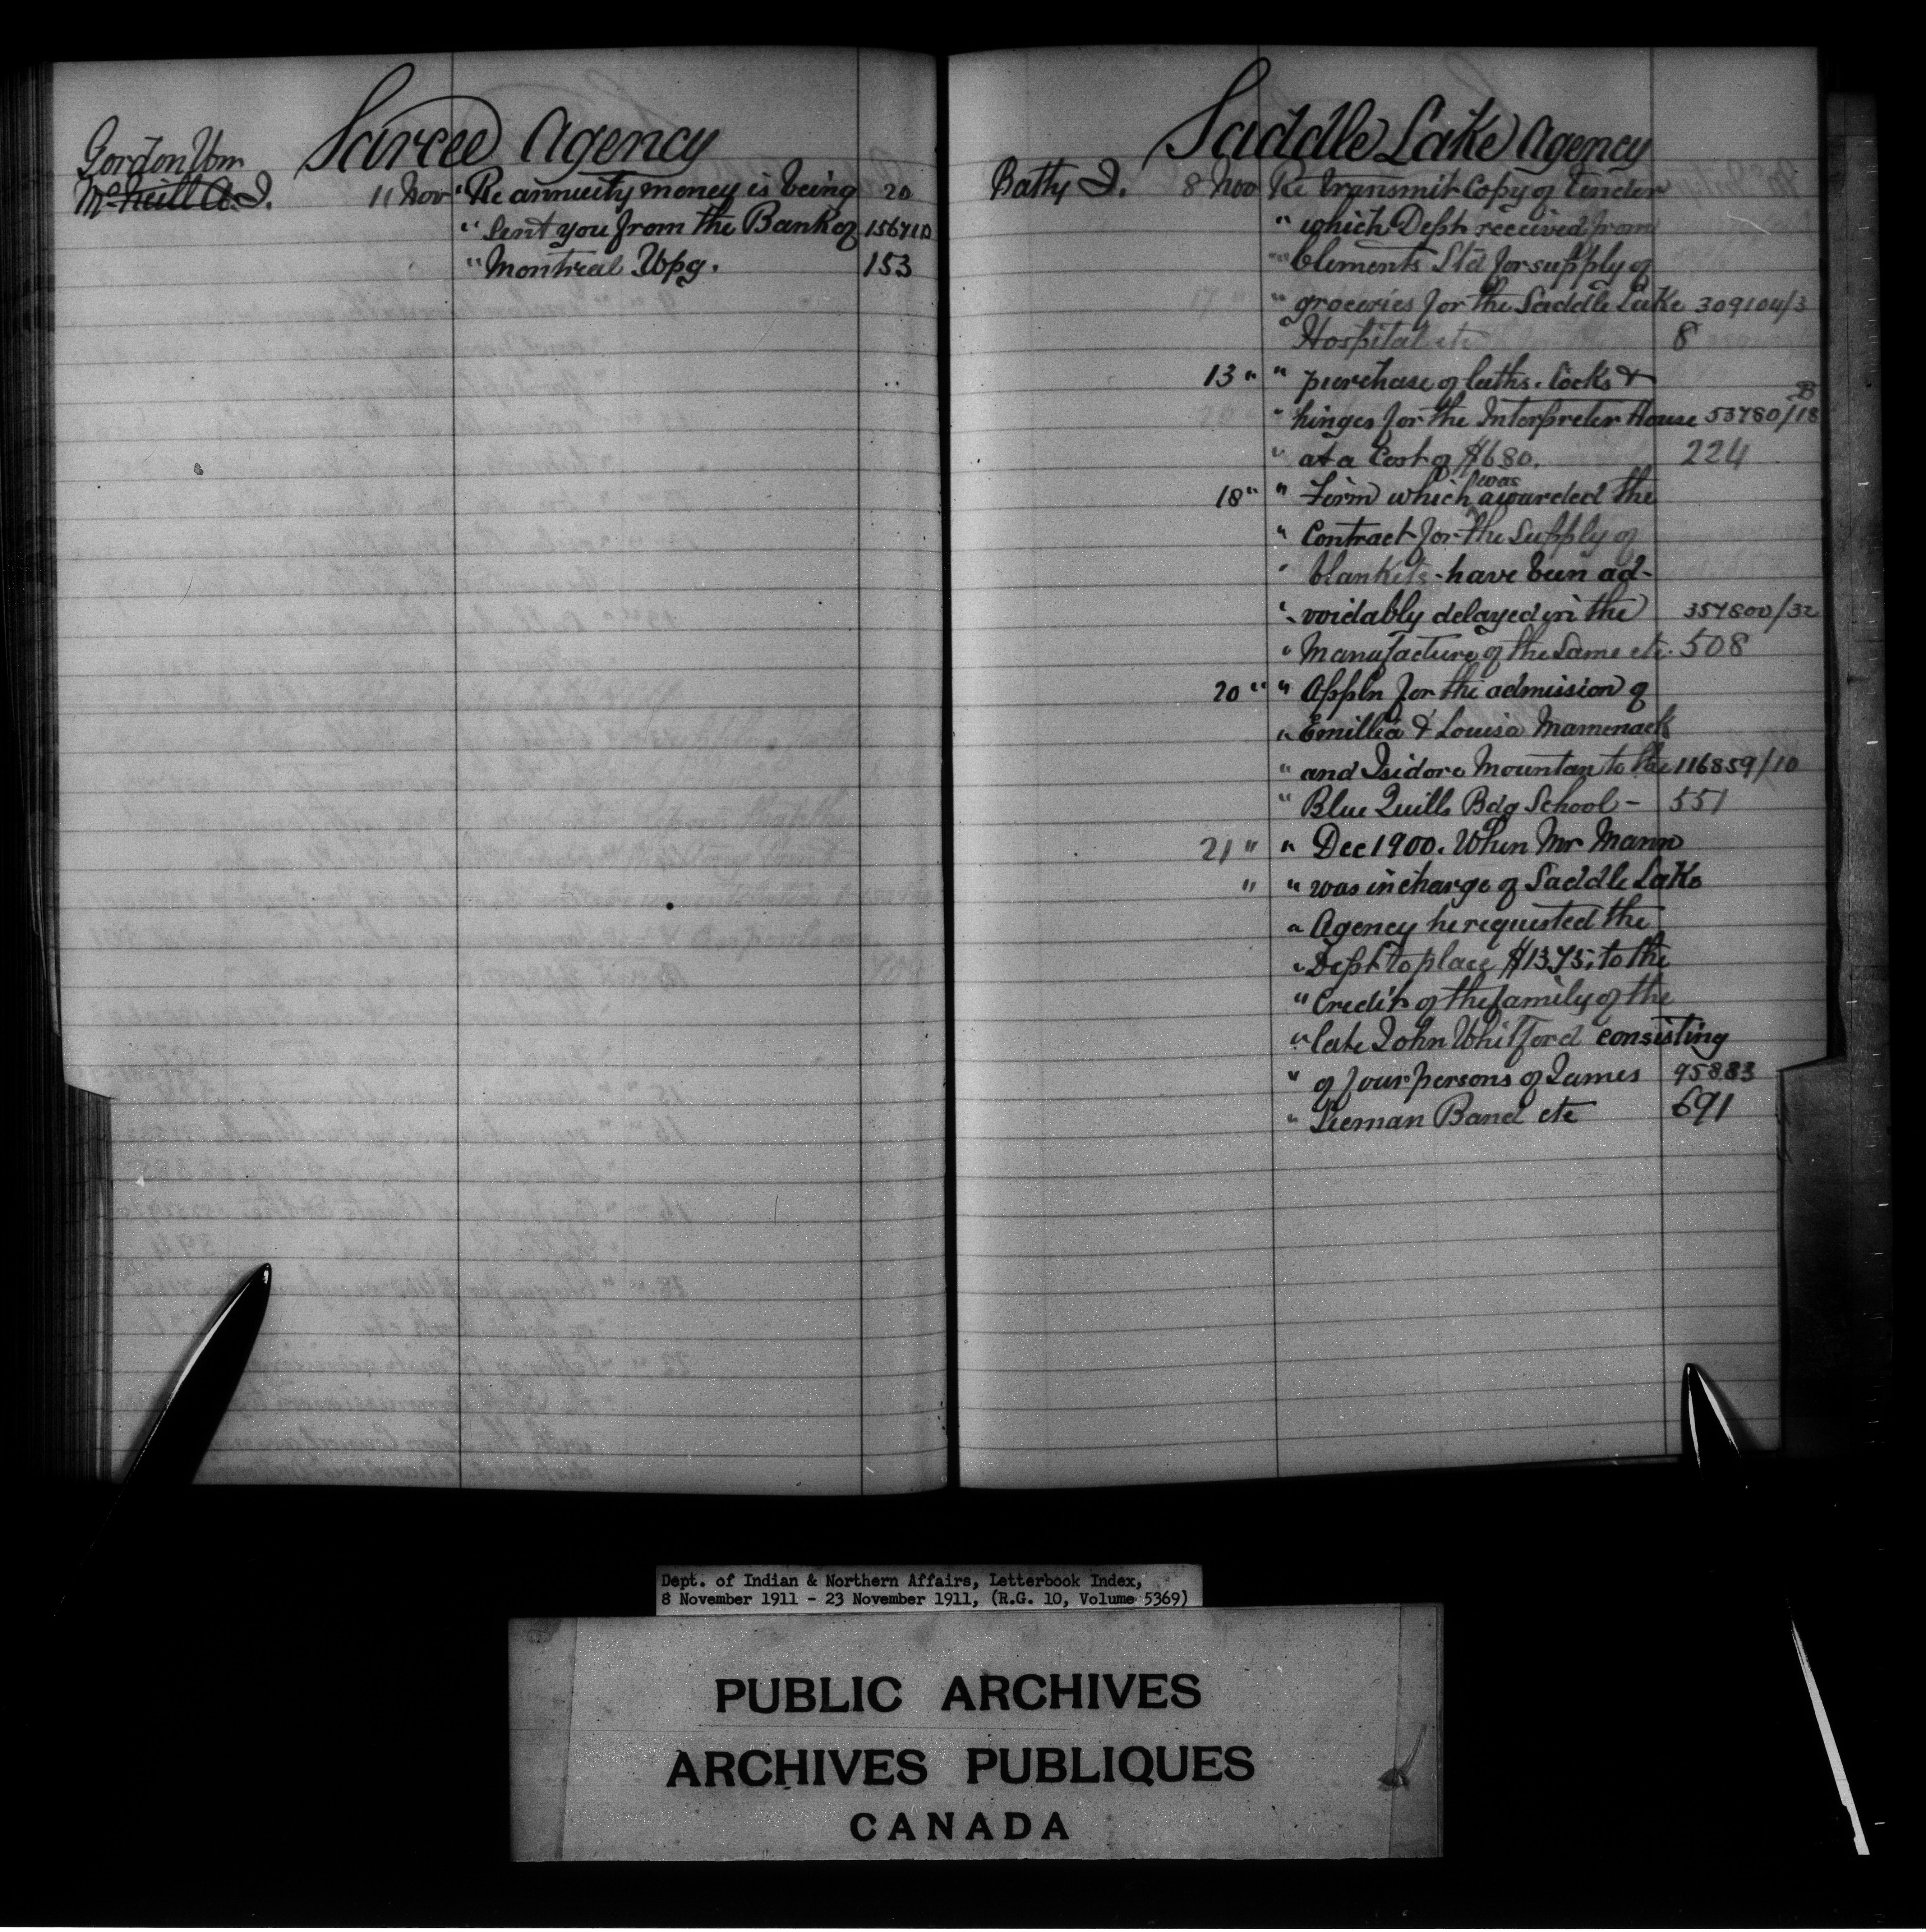 Sarcee Agency
Gordon Wm
McNeill A. J.
11 Nov " Re annuity money is being 20
" Sent you from the Bank of 156710
" Montreal Wpg. 153
Saddle Lake Agency
Batty J. 8 Nov Re transmit Copy of Tender
" which Dept received from
" Clements Ltd for supply of
" groceries for the Saddle Lake 309104/3
" Hospital etc 8
13 " " purchase of laths. locks &
" hinges for the Interpreter House 53780/18 B
" at a Cost of $680. 224
18 " " Firm which was awarded the
" Contract for the Supply of
" blankets - have been ad-
" voidably delayed in the 357800/32
" Manufacture of the Same etc. 508
20 " " Appln for the admission of
" Emillia & Louisa Mamenack
" and Isidore Mountan to the 116859/10
" Blue Quills Bdg School - 551
21 " " Dec 1900. When Mr Mann
" " was in charge of Saddle Lake
" Agency he requested the
" Dept to place $13.75; to the
" Credit of the family of the
" late John Whitford consisting
" of four persons of James 95883
" Seeman Band etc 691
Dept. of Indian & Northern Affairs, Letterbook Index,
8 November 1911 - 23 November 1911, (R.G. 10, Volume 5369)
PUBLIC ARCHIVES
ARCHIVES PUBLIQUES
CANADA